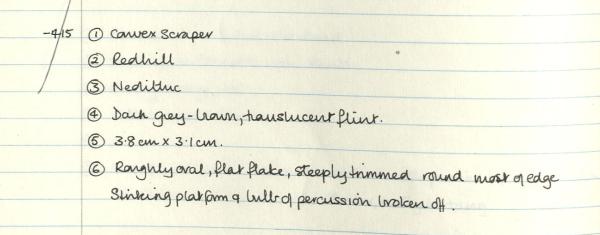 -415 ① Convex Scraper
② Redhill
③ Neolithic
④ Dark grey-brown, translucent flint.
⑤ 3.8 cm x 3.1 cm.
⑥ Roughly oval, flat flake, steeply trimmed round most of edge
Striking platform & bulb of percussion broken off.